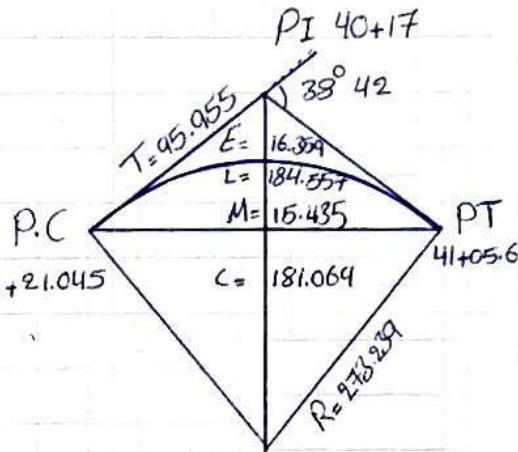 PI 40+17
38° 42
T=95.955
E= 16.359
L= 184.557
M= 15.435
P.C
PT
+21.045
41+05.6
C= 181.069
R=273.239